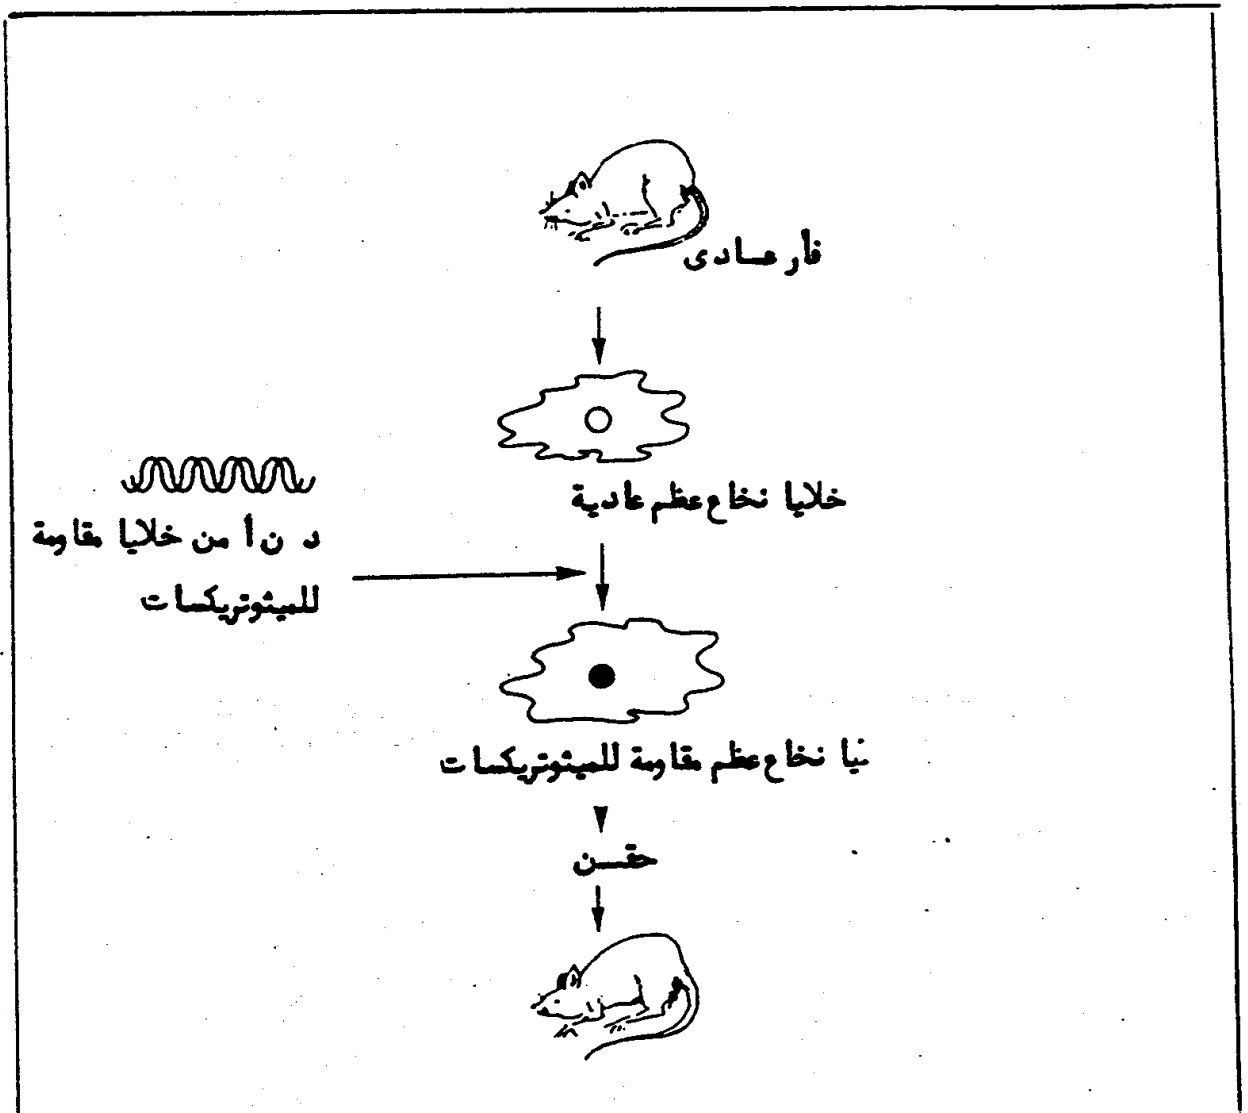 فأر عادى
خلايا نخاع عظم عادية
د ن أ من خلايا مقاومة
للميثوتريكسات
نخاع عظم مقاومة للميثوتريكسات
حقن